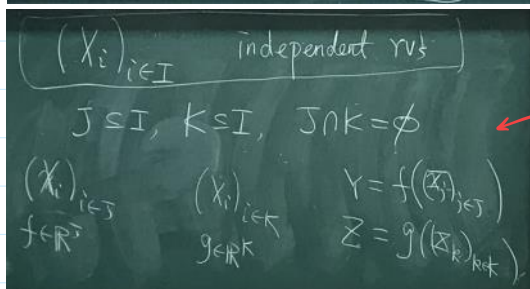 (X_i)_{i∈I} independent rvs
J⊆I, K⊆I, J∩K=∅
(X_i)_{i∈J} (X_i)_{i∈K} Y = f((X_j)_{j∈J})
f∈ℝ^J g∈ℝ^K Z = g((X_k)_{k∈K})